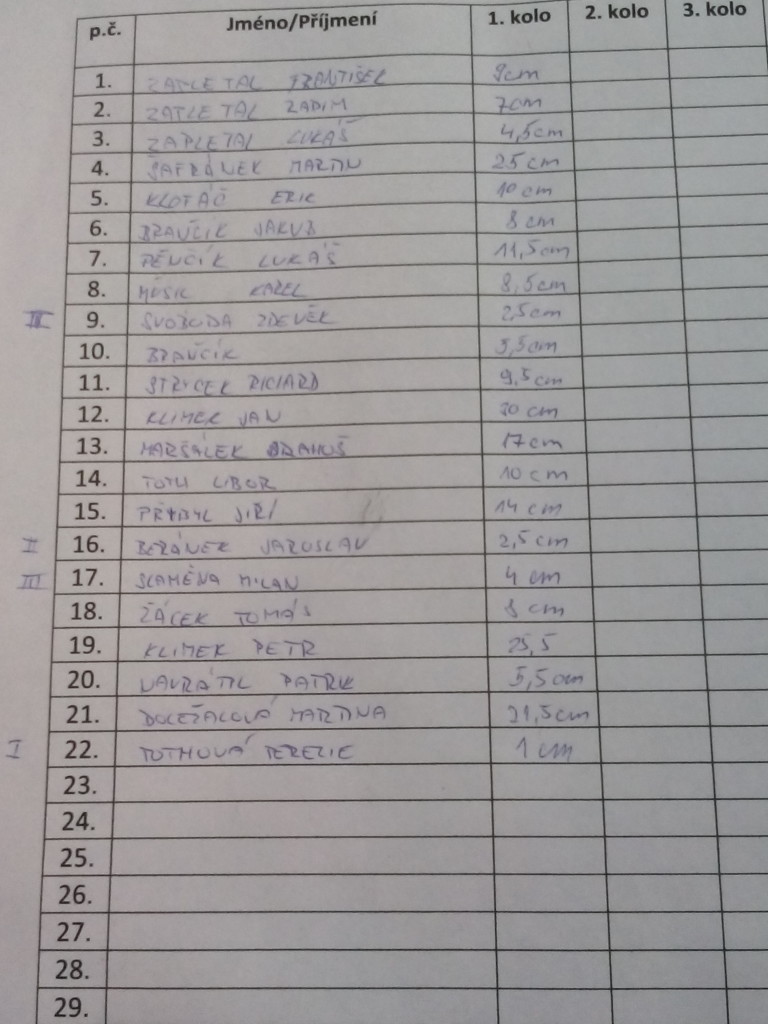 p.č. Jméno/Příjmení 1. kolo 2. kolo 3. kolo
1. ZAPLETAL FRANTIŠEK 9cm
2. ZAPLETAL RADIM 7cm
3. ZAPLETAL LUKÁŠ 4,5cm
4. ŠAFRÁNEK MARTIN 25cm
5. KLOTÁČ ERIK 10cm
6. BRAVČÍK JAKUB 8cm
7. PĚNČÍK LUKÁŠ 11,5cm
8. MUSIL KAREL 8,5cm
III 9. SVOBODA ZDENĚK 25cm
10. BRAVČÍK 5,5cm
11. STRYCEK RICHARD 9,5cm
12. KLIMEK JAN 20cm
13. MARŠÁLEK DRAHOŠ 17cm
14. TOTH LIBOR 10cm
15. PŘIBYL JIŘÍ 14cm
II 16. BERÁNEK JAROSLAV 2,5cm
III 17. SLAMĚNA MILAN 4cm
18. ŽÁČEK TOMÁŠ 8cm
19. KLIMEK PETR 25,5
20. NAVRÁTIL PATRIK 5,5cm
21. DOLEŽALOVÁ MARTINA 21,5cm
I 22. TOTHOVÁ TEREZIE 1cm
23.
24.
25.
26.
27.
28.
29.